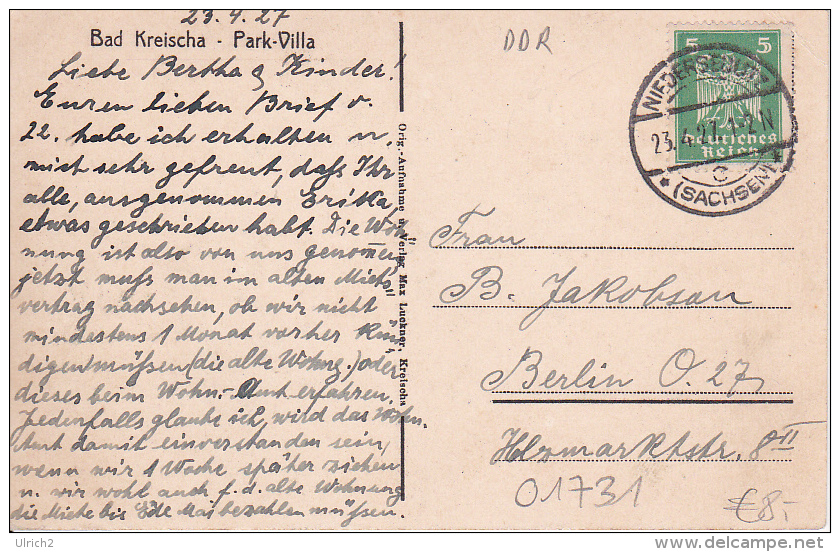 23.4.27
Bad Kreischa - Park-Villa
Liebe Bertha & Kinder!
Euren lieben Brief v.
22. habe ich erhalten u.
mich sehr gefreut, daß Ihr
alle, ausgenommen Erika,
etwas geschrieben habt. Die Woh-
nung ist also von uns genommen,
jetzt muß man im alten Miets-
vertrag nachsehen, ob wir nicht
mindestens 1 Monat vorher kün-
digen müßen (die alte Wohng.) oder
dieses beim Wohn.-Amt erfahren.
Jedenfalls glaube ich, wird das Wohn.
Amt damit einverstanden sein,
wenn wir 1 Woche später ziehen
u. wir wohl auch f. d. alte Wohnung
die Miete bis Ende Mai bezahlen müßen.
Orig.-Aufnahme u. Verlag Max Luckner, Kreischa
DDR
5 5
Deutsches
Reich
NIEDERSEDLITZ
23.4.27. 1-2 N
C
* (SACHSEN) *
Frau
B. Jakobson
Berlin O. 27
Holzmarktstr. 8 II
01731
€8,-
© Ulrich2
www.delcampe.net